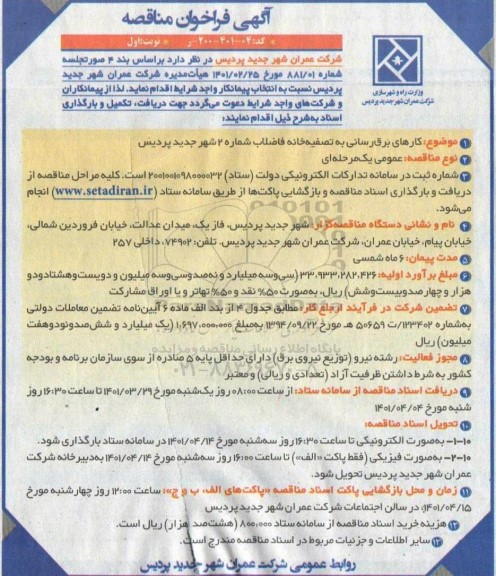 آگهی فراخوان مناقصه
کد: ۰۴-۲۰۱-۲۰۰-ر نوبت: اول
وزارت راه و شهرسازی
شرکت عمران شهر جدید پردیس
شرکت عمران شهر جدید پردیس در نظر دارد براساس بند ۴ صورتجلسه
شماره ۸۸۱/۰۱ مورخ ۱۴۰۱/۰۲/۲۵ هیأت‌مدیره شرکت عمران شهر جدید
پردیس نسبت به انتخاب پیمانکار واجد شرایط اقدام نماید. لذا از پیمانکاران
و شرکت‌های واجد شرایط دعوت می‌گردد جهت دریافت، تکمیل و بارگذاری
اسناد به‌شرح ذیل اقدام نمایند:
۱ موضوع: کارهای برق‌رسانی به تصفیه‌خانه فاضلاب شماره ۲ شهر جدید پردیس
۲ نوع مناقصه: عمومی یک‌مرحله‌ای
۳ شماره ثبت در سامانه تدارکات الکترونیکی دولت (ستاد) ۲۰۰۱۰۰۱۰۹۸۰۰۰۰۳۲ است. کلیه مراحل مناقصه از
دریافت و بارگذاری اسناد مناقصه و بازگشایی پاکت‌ها از طریق سامانه ستاد (www.setadiran.ir) انجام
می‌شود.
۴ نام و نشانی دستگاه مناقصه‌گزار: شهر جدید پردیس، فاز یک، میدان عدالت، خیابان فروردین شمالی،
خیابان پیام، خیابان عمران، شرکت عمران شهر جدید پردیس. تلفن: ۷۴۹۰۲، داخلی ۲۵۷
۵ مدت پیمان: ۶ ماه شمسی
۶ مبلغ برآورد اولیه: ۳۳،۹۳۳،۲۸۲،۴۲۶ (سی‌وسه میلیارد و نه‌صدوسی‌وسه میلیون و دویست‌وهشتادودو
هزار و چهارصدوبیست‌وشش) ریال، به‌صورت ۵۰% نقد و ۵۰% تهاتر و یا اوراق مشارکت
۷ تضمین شرکت در فرآیند ارجاع کار: مطابق جدول ۴ از بند الف ماده ۶ آیین‌نامه تضمین معاملات دولتی
به‌شماره ۱۲۳۴۰۲/ت ۵۰۶۵۹ هـ مورخ ۱۳۹۴/۰۹/۲۲ به‌مبلغ ۱،۶۹۷،۰۰۰،۰۰۰ (یک میلیارد و شش‌صدونودوهفت
میلیون) ریال
۸ مجوز فعالیت: رشته نیرو (توزیع نیروی برق) دارای حداقل پایه ۵ صادره از سوی سازمان برنامه و بودجه
کشور به شرط داشتن ظرفیت آزاد (تعدادی و ریالی) و معتبر
۹ دریافت اسناد مناقصه از سامانه ستاد: از ساعت ۰۸:۰۰ روز یک‌شنبه مورخ ۱۴۰۱/۰۳/۲۹ تا ساعت ۱۶:۳۰ روز
شنبه مورخ ۱۴۰۱/۰۴/۰۴
۱۰ تحویل اسناد مناقصه:
۱-۱۰- به‌صورت الکترونیکی تا ساعت ۱۶:۳۰ روز سه‌شنبه مورخ ۱۴۰۱/۰۴/۱۴ در سامانه ستاد بارگذاری شود.
۲-۱۰- به‌صورت فیزیکی (فقط پاکت «الف») تا ساعت ۱۶:۰۰ روز سه‌شنبه مورخ ۱۴۰۱/۰۴/۱۴ به‌دبیرخانه شرکت
عمران شهر جدید پردیس تحویل شود.
۱۱ زمان و محل بازگشایی پاکت اسناد مناقصه «پاکت‌های الف، ب و ج»: ساعت ۱۲:۰۰ روز چهارشنبه مورخ
۱۴۰۱/۰۴/۱۵، در سالن اجتماعات شرکت عمران شهر جدید پردیس
۱۲ هزینه خرید اسناد مناقصه از سامانه ستاد ۸۰۰،۰۰۰ (هشت‌صد هزار) ریال است.
۱۳ سایر اطلاعات و جزئیات مربوط در اسناد مناقصه مندرج است.
روابط عمومی شرکت عمران شهر جدید پردیس